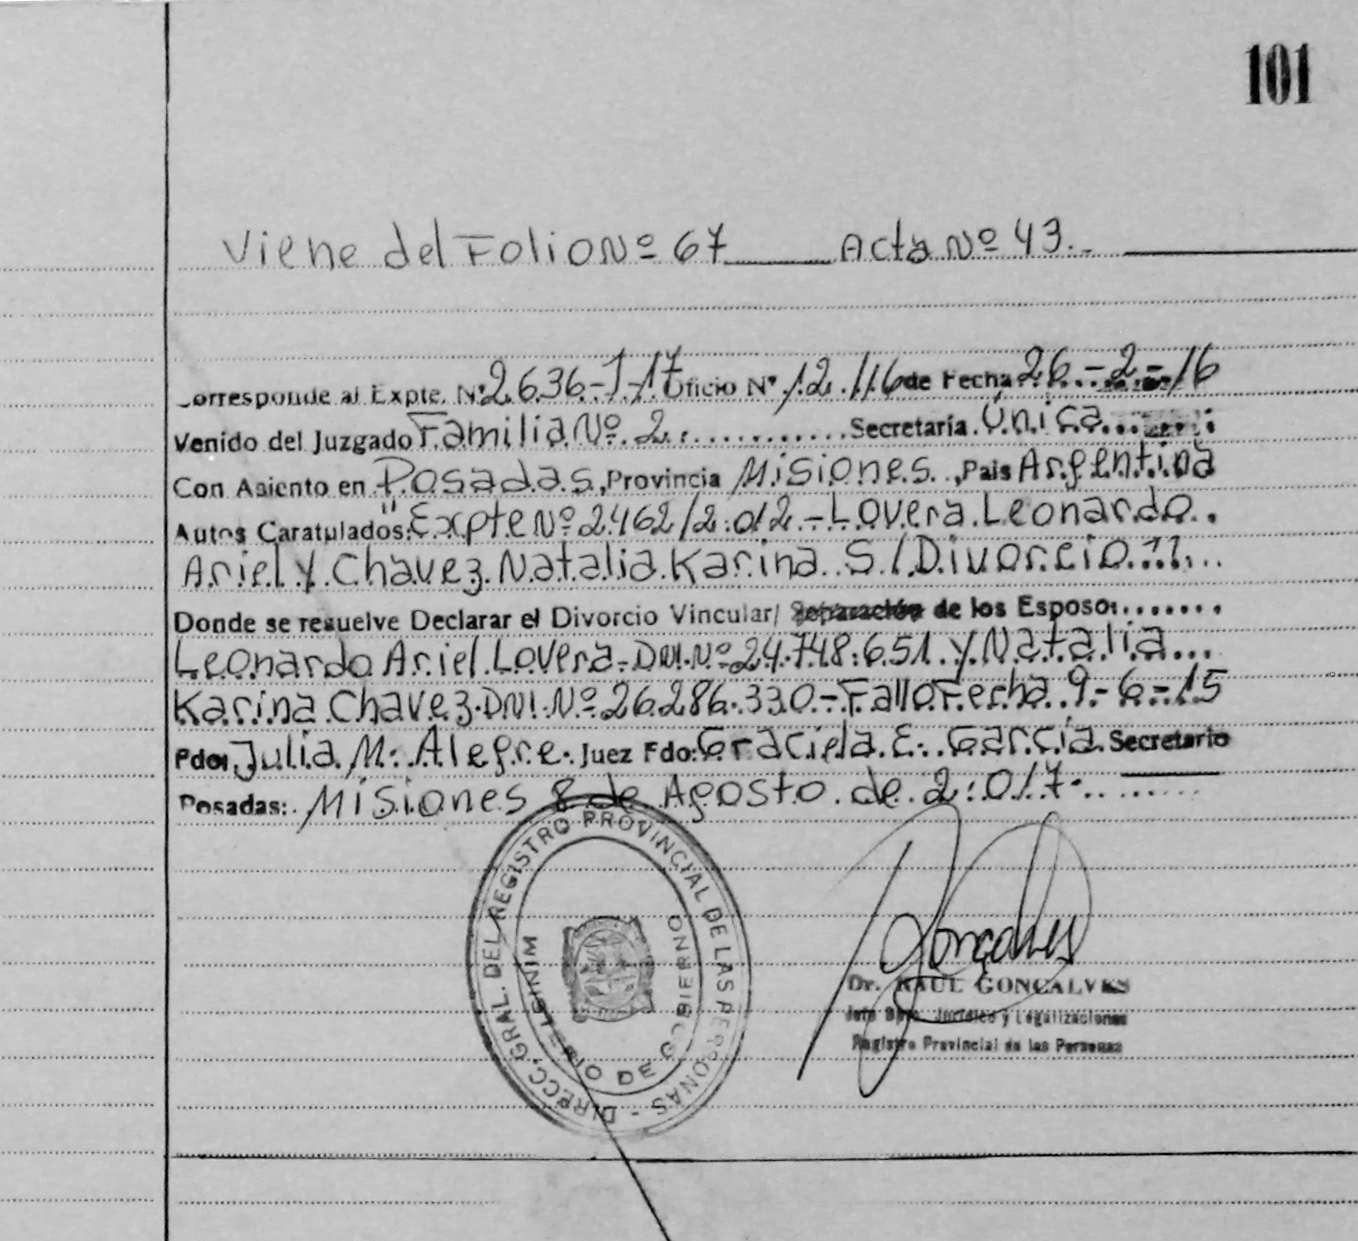 101
Viene del Folio Nº 67 ____ Acta Nº 43.
Corresponde al Expte. Nº 2636-J-17 Oficio Nº 12.116 de Fecha 26-2-16
Venido del Juzgado Familia Nº 2. ............ Secretaría Única......
Con Asiento en Posadas, Provincia Misiones., País Argentina
Autos Caratulados: "Expte Nº 2462/2.012.- Lovera Leonardo..
Ariel y Chavez Natalia Karina S/Divorcio"...
Donde se resuelve Declarar el Divorcio Vincular/ Separación de los Esposos.......
Leonardo Ariel Lovera-DNI.Nº 24.748.651. y Natalia...
Karina Chavez.DNI.Nº 26.286.330.- Fallo Fecha 9-6-15
Fdo: Julia M. Alegre. Juez Fdo: Graciela E. García Secretario
Posadas: Misiones 8 de Agosto de 2.017.........
DIRECC. GRAL. DEL REGISTRO PROVINCIAL DE LAS PERSONAS -
MINISTERIO DE GOBIERNO
Dr. RAUL GONÇALVES
Jefe Dpto. Jurídico y Legalizaciones
Registro Provincial de las Personas